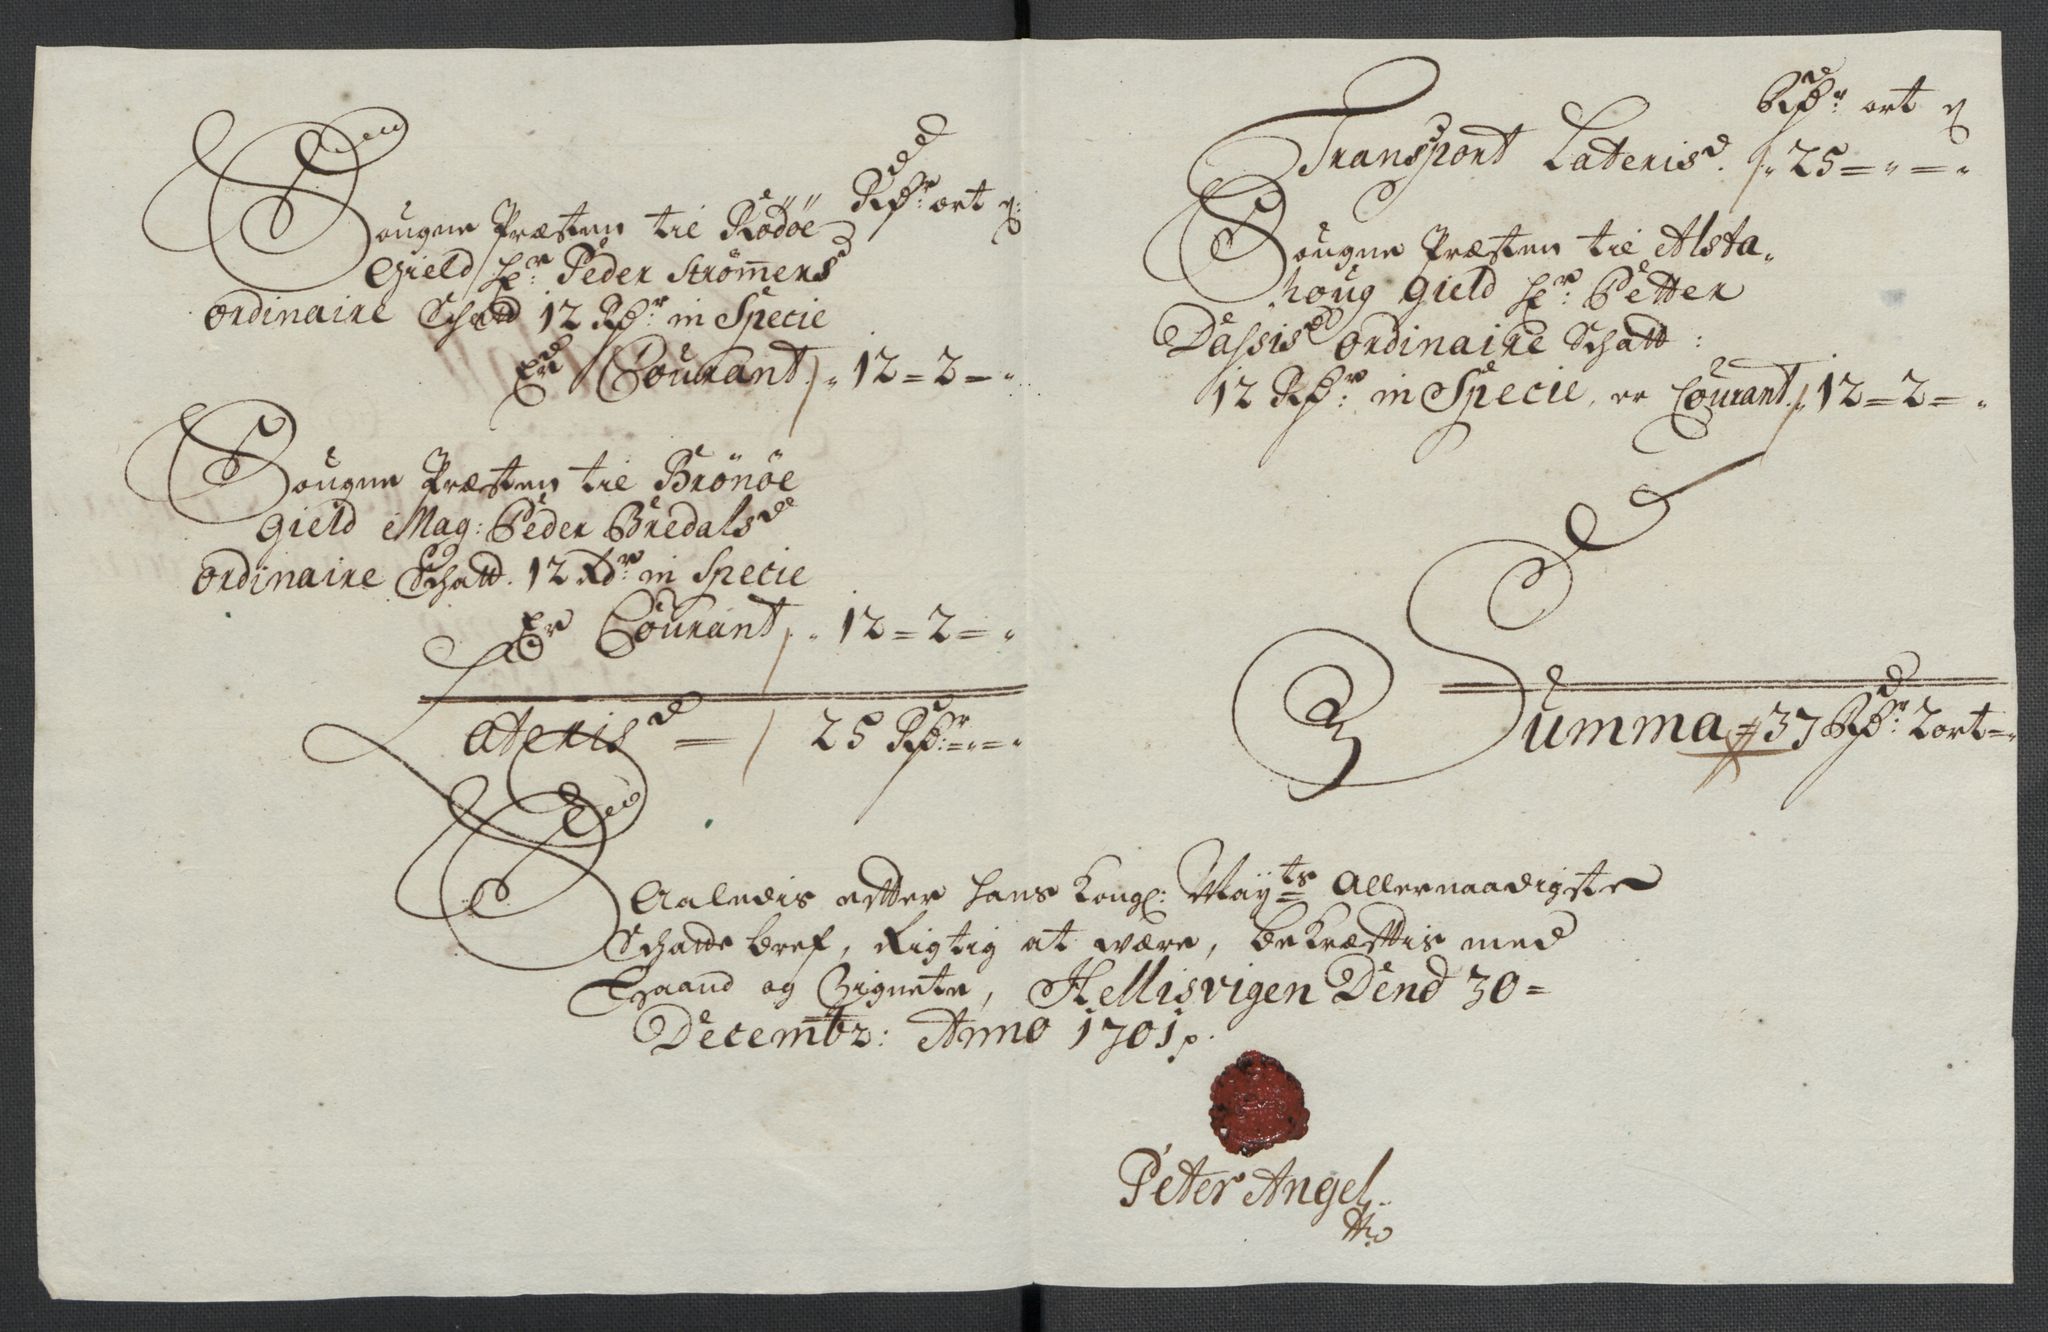 Rdr ort ß:
Sougne Præsten til Rödöe
Gield Hr: Peder Strömmers
ordinaire Schatt 12 Rdr: in Specie
Er Courant 12 = 2 = "
Sougne Præsten til Brönöe
Gield Mag: Peder Bredals
ordinaire Schatt. 12 Rdr: in Specie
Er Courant 12 = 2 = "
Lateris 25 Rdr: = " = "
Rdr: ort ß
Transport Lateris 25 = " = "
Sougne Præsten til Alsta-
houg gield Hr: Petter
Dassis ordinaire Schatt:
12 Rdr: in Specie, er Courant 12 = 2 = "
Summa 37 Rdr: 2 ort = "
Saaledis effter Hans Kongl: Mayts Allernaadigste
Schatte bref, Rigtig at være, bekræfftis med
Haand og Zignete, Hellisvigen Dend 30 =
Decembr: Anno 1701.
Peter Angel